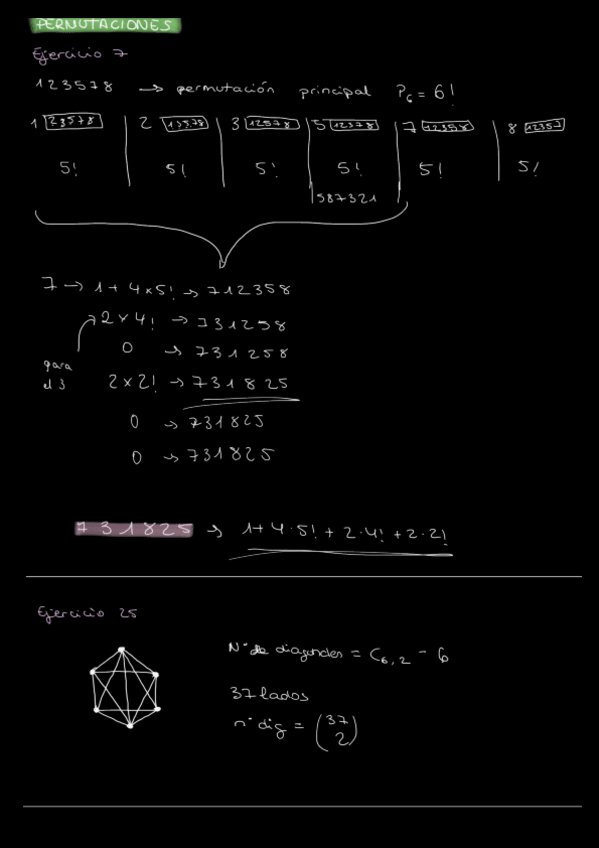 PERMUTACIONES
Ejercicio 7
123578 → permutación principal P₆ = 6!
1 23578 | 2 13578 | 3 12578 | 5 12378 | 7 12358 | 8 12357
5! | 5! | 5! | 5! | 5! | 5!
587321
7 → 1 + 4 × 5! → 712358
2 × 4! → 731258
0 → 731258
para el 3
2 × 2! → 731825
0 → 731825
0 → 731825
731825 → 1 + 4 · 5! + 2 · 4! + 2 · 2!
Ejercicio 25
Nº de diagonales = C₆,₂ - 6
37 lados
nº dig = (37 2)